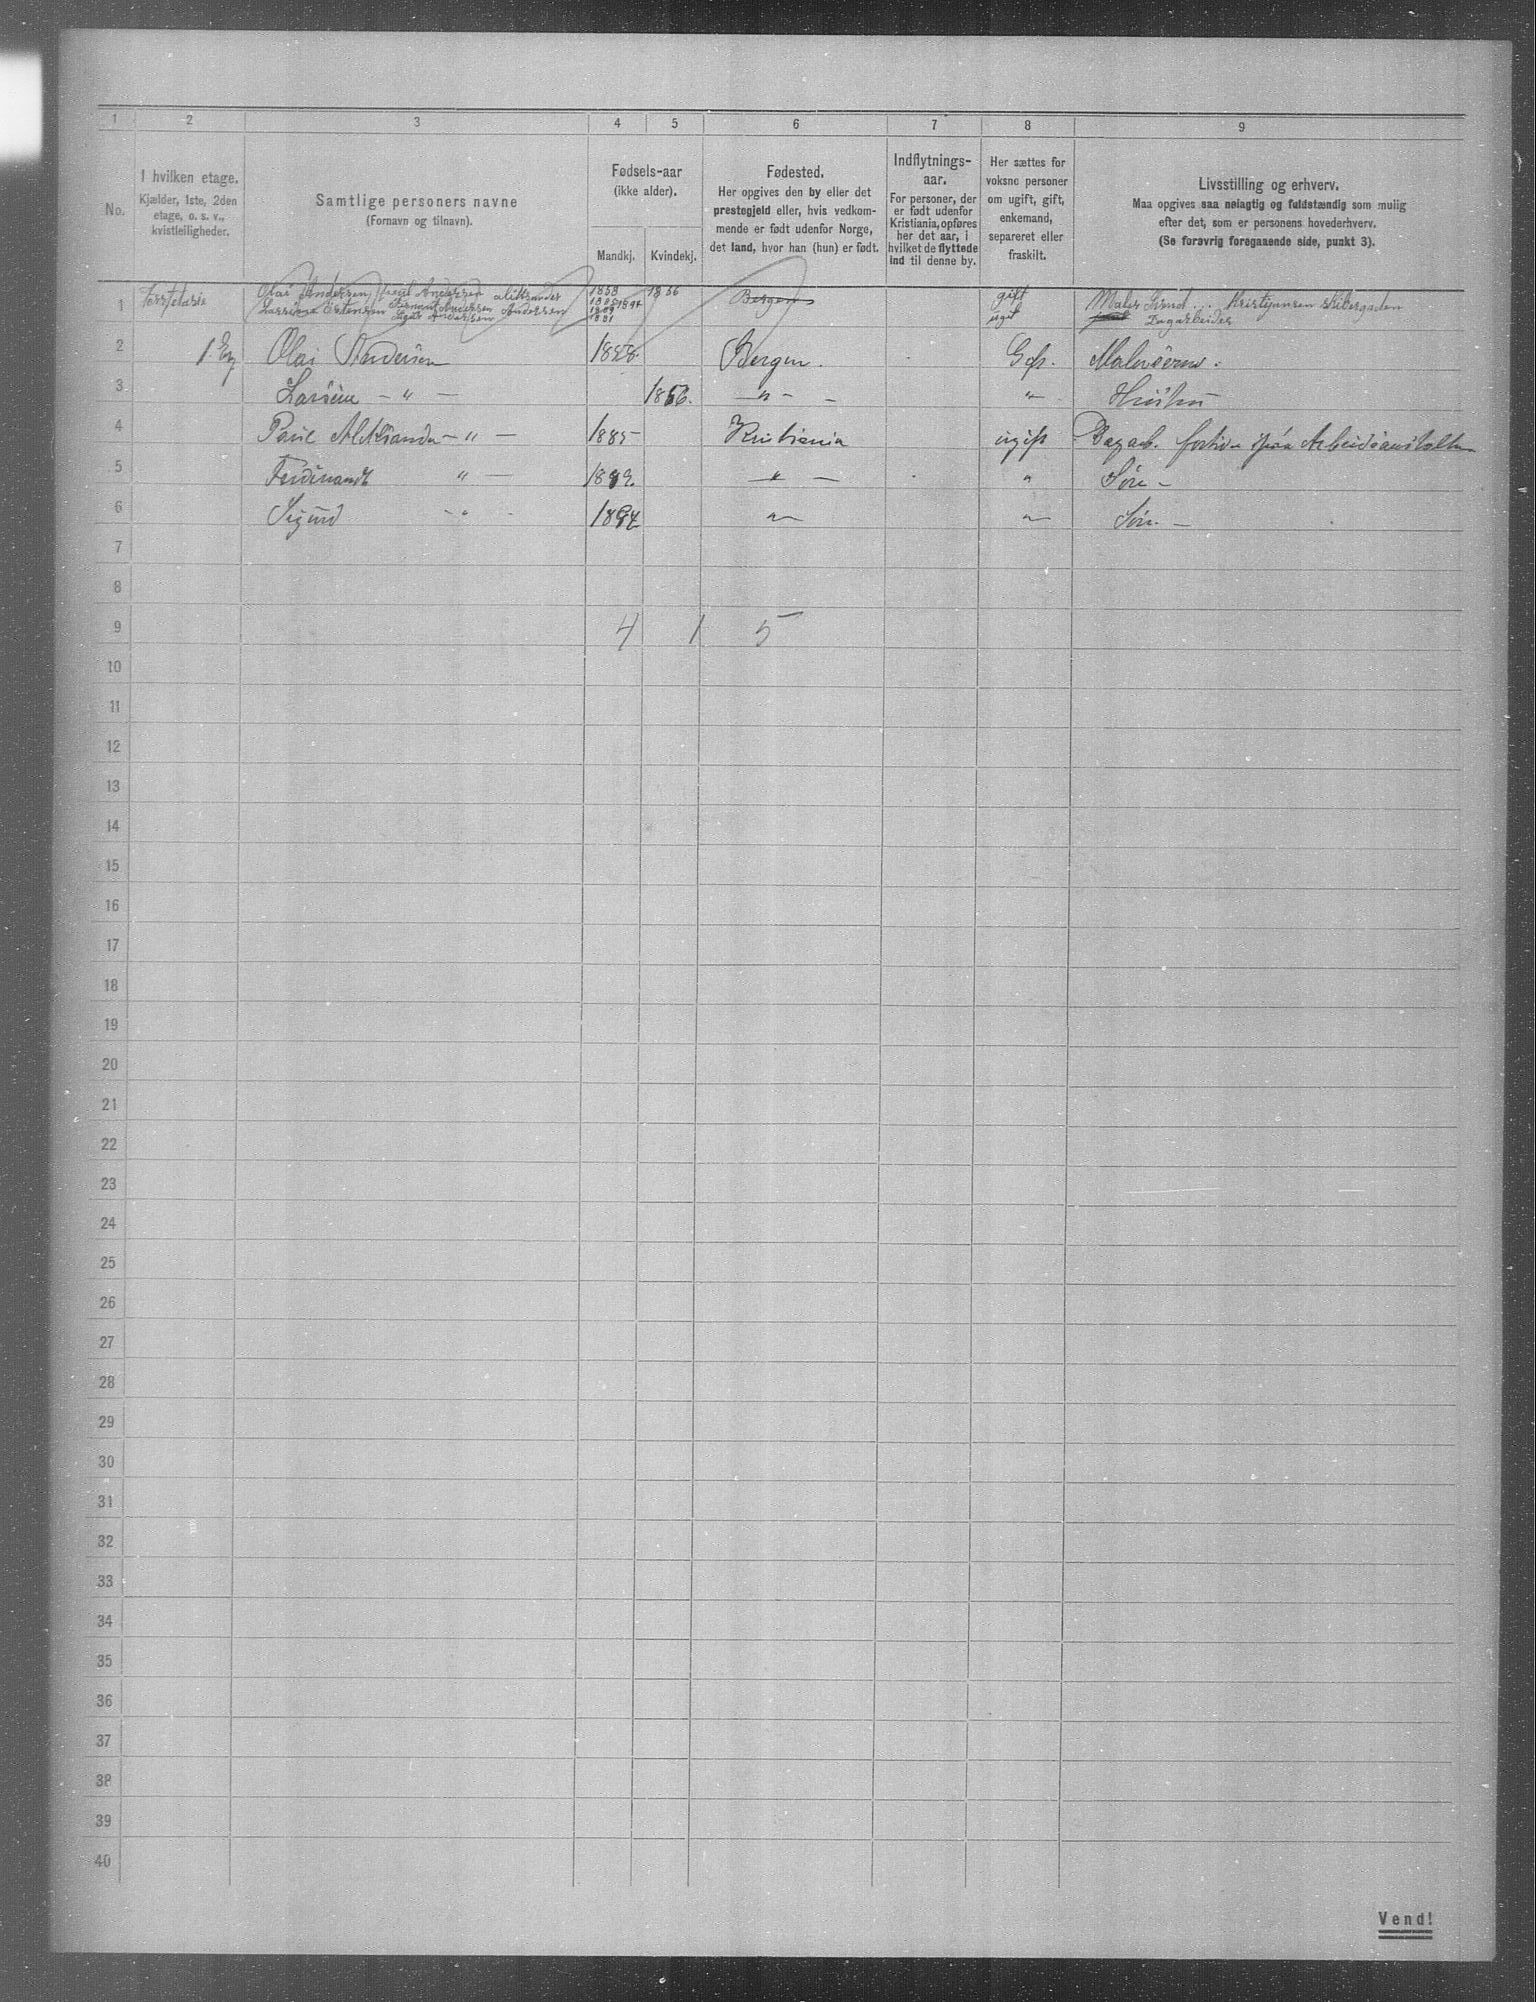 1 2 3 4 5 6 7 8 9
No.
I hvilken etage.
Kjælder, 1ste, 2den
etage, o. s. v.,
kvistleiligheder.
Samtlige personers navne
(Fornavn og tilnavn).
Fødsels-aar
(ikke alder).
Mandkj. Kvindekj.
Fødested.
Her opgives den by eller det
prestegjeld eller, hvis vedkom-
mende er født udenfor Norge,
det land, hvor han (hun) er født.
Indflytnings-
aar.
For personer, der
er født udenfor
Kristiania, opføres
her det aar, i
hvilket de flyttede
ind til denne by.
Her sættes for
voksne personer
om ugift, gift,
enkemand,
separeret eller
fraskilt.
Livsstilling og erhverv.
Maa opgives saa nøiagtig og fuldstændig som mulig
efter det, som er personens hovederhverv.
(Se forøvrig foregaaende side, punkt 3).
1 Olai Andersen Andersen 1858 1856 Bergen gift Maler Kristjansen
Andersen Andersen 1894 Dagarbeider
2 1. Etg Olai Andersen 1858 Bergen. Gift.
3 — " — 1856. — " — "
4 Aleksander — " — 1885 Kristiania ugift Dagarb.
5 Ferdinandt " — — " — " Søn —
6 Sigurd — " — 1894 " " Søn. —
7
8
9 4 1 5
10
11
12
13
14
15
16
17
18
19
20
21
22
23
24
25
26
27
28
29
30
31
32
33
34
35
36
37
38
39
40
Vend!